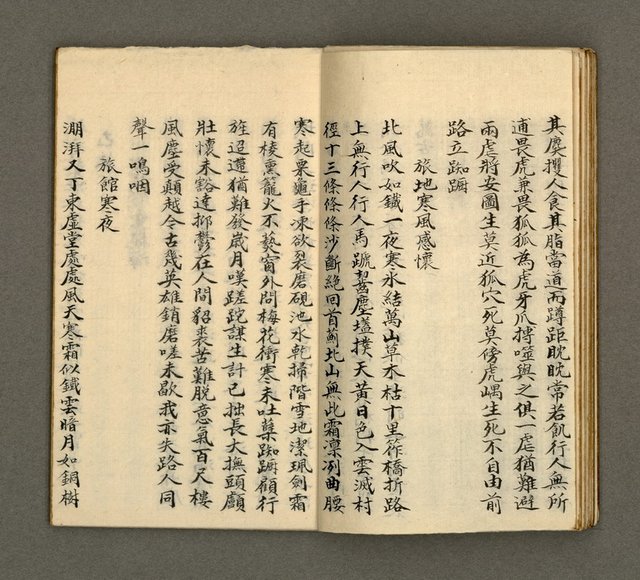 其麋攫人食其脂當道而蹲距眈眈常若飢行人無所
逋畏虎兼畏狐狐為虎牙爪搏噬與之俱一虐猶難避
兩虐將安圖生莫近狐穴死莫傍虎嵎生死不自由前
路立踟躕
旅地寒風感懷
北風吹如鐵一夜寒氷結萬山草木枯十里筰橋折路
上無行人行人馬蹏齧塵壒撲天黃日色入雲滅村
徑十三條條條沙斷絕回首薊北山無此霜凛冽曲腰
寒起栗龜手凍欲裂磨硯池水乾掃階雪地潔珮劍霜
有棱熏籠火不爇窗外問梅花衝寒未吐蘂踟躕顧行
旌迢遭猶難發歲月嘆蹉跎謀生計已拙長大撫頭顱
壯懷未豁達抑鬱在人間貂裘苦難脫意氣百尺樓
風塵受顛越今古幾英雄銷磨嗟未歇我亦失路人同
聲一鳴咽
旅館寒夜
淜湃又丁東虛堂處處風天寒霜似鐵雲暗月如銅樹